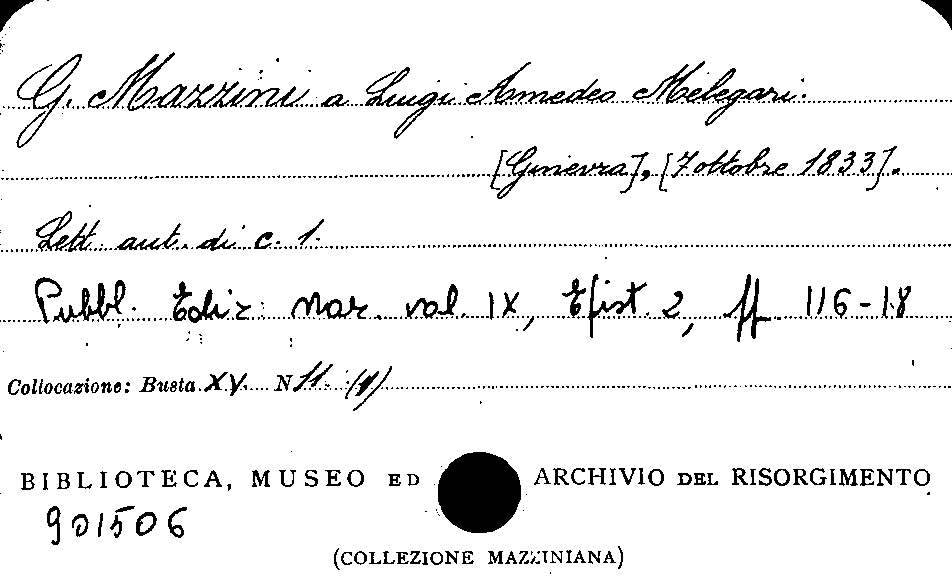 G. Mazzini a Luigi Amedeo Melegari.
[Ginevra], [7 ottobre 1833].
Lett. aut. di c. 1.
Pubbl. Ediz. naz. vol. IX, Epist. 2, pp. 116-18
Collocazione: Busta XV. N 11. (1)
BIBLIOTECA, MUSEO ED ARCHIVIO DEL RISORGIMENTO
901506
(COLLEZIONE MAZZINIANA)